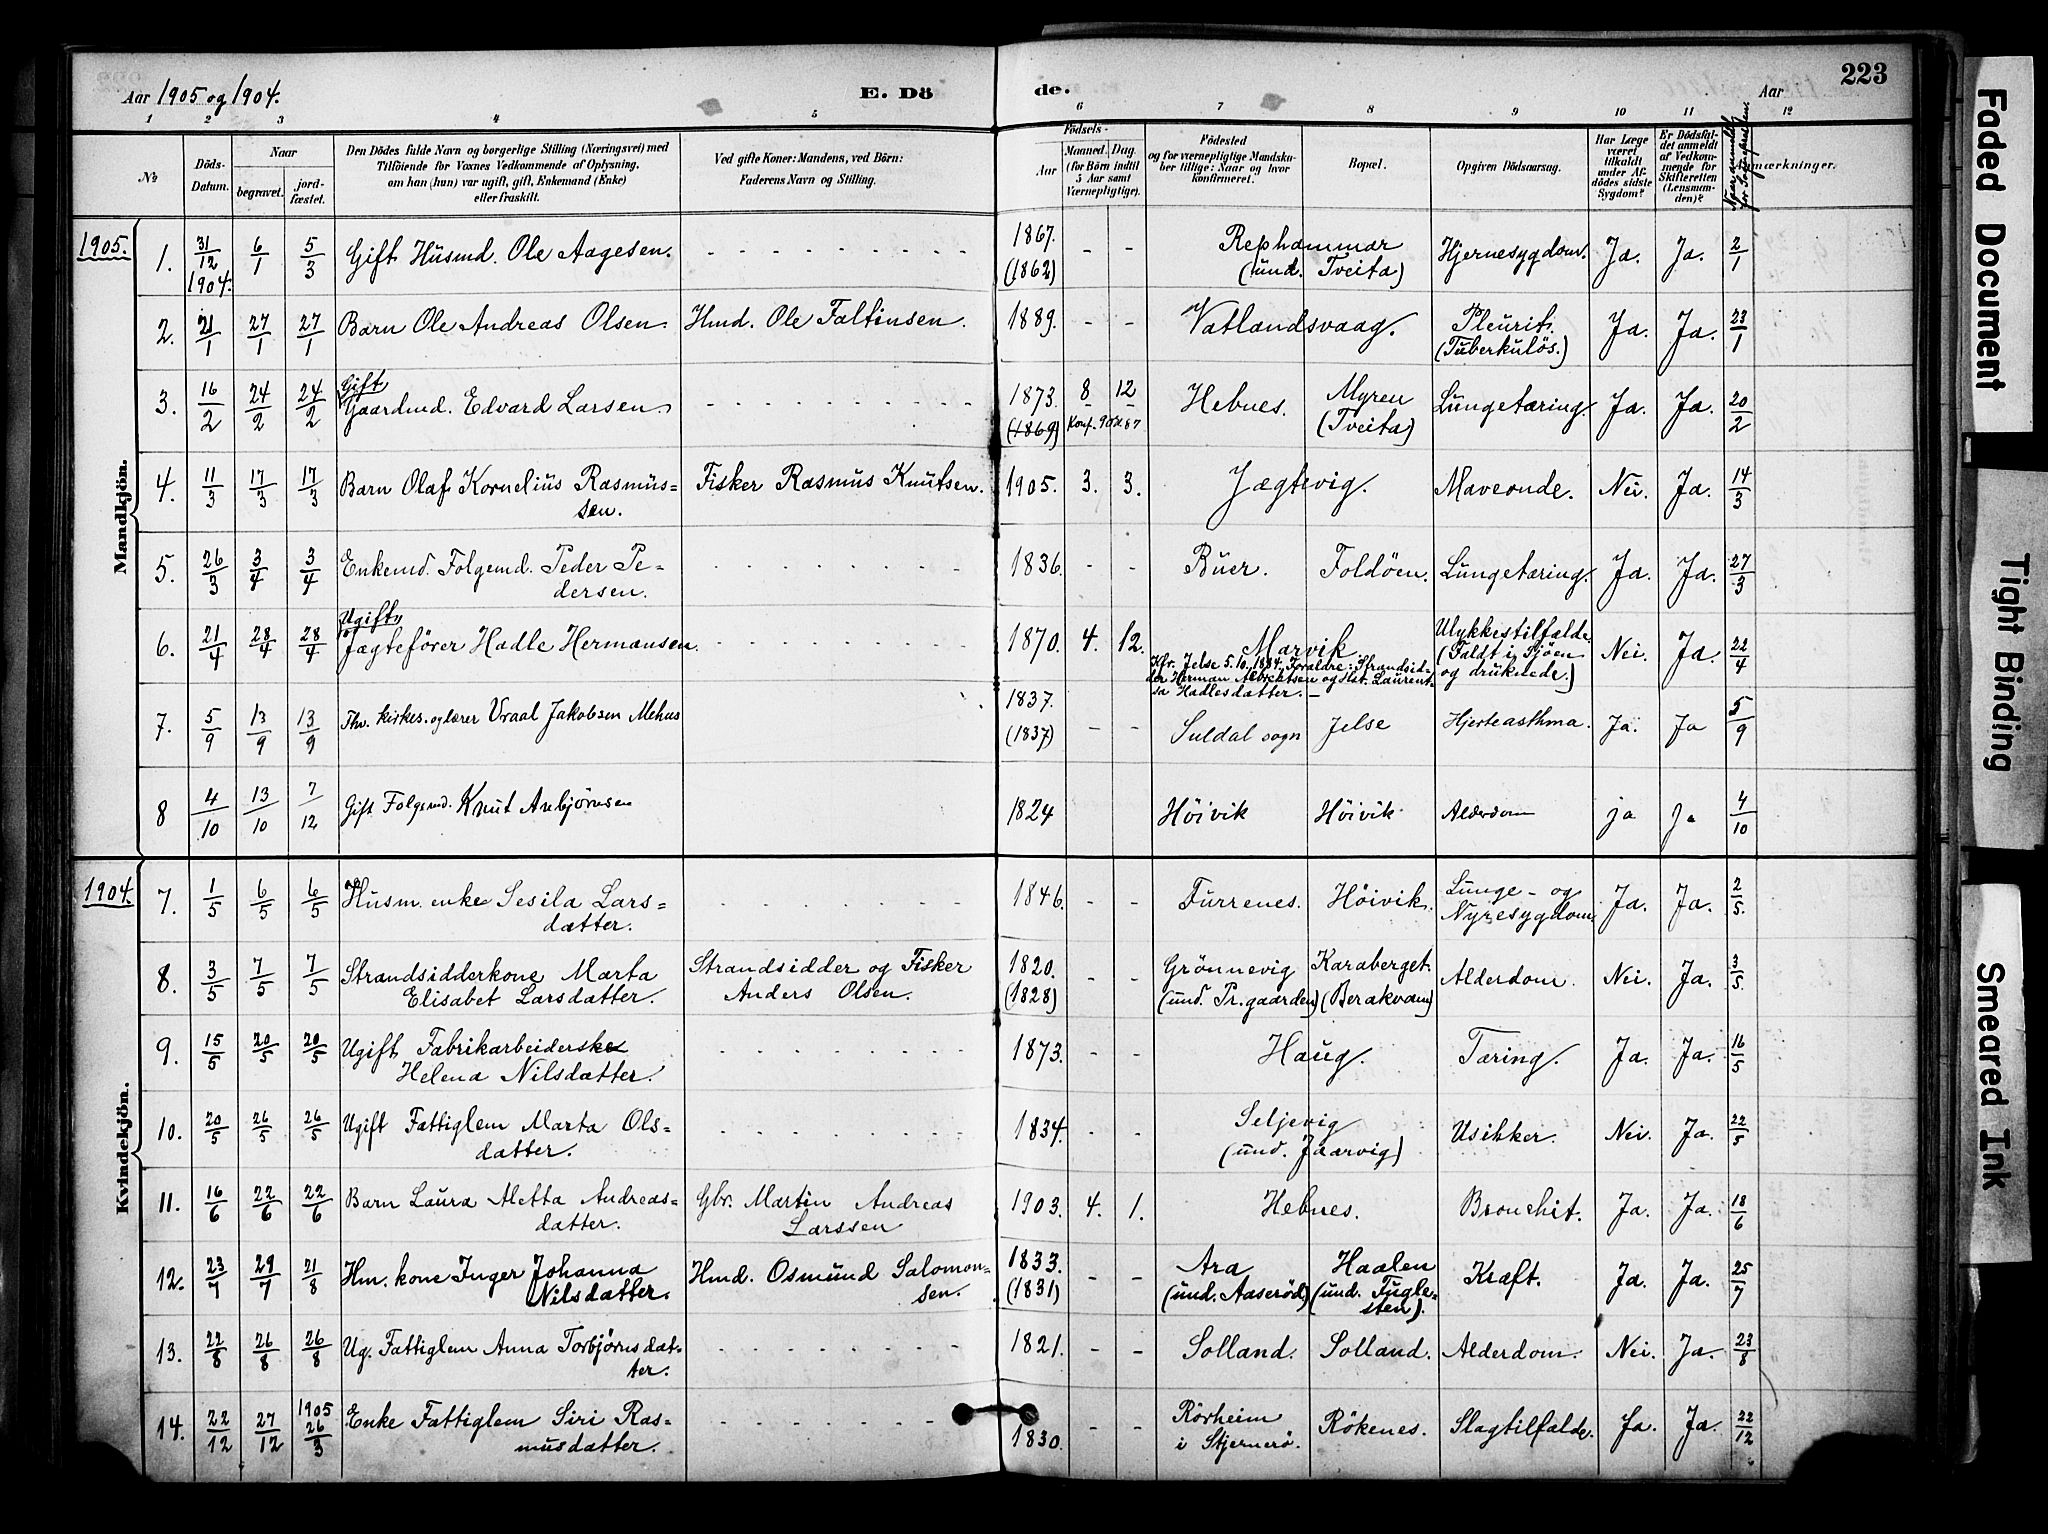 Aar 1905 og 1904.
E. Dö
de.
Aar
223
1 2 3 4 5 6 7 8 9 10 11 12
No
Döds-
Datum.
Naar
begravet.
jord-
fæstet.
Den Dödes fulde Navn og borgerlige Stilling (Næringsvei) med
Tilföiende for Voxnes Vedkommende af Oplysning,
om han (hun) var ugift, gift, Enkemand (Enke)
eller fraskilt.
Ved gifte Koner: Mandens, ved Börn:
Faderens Navn og Stilling.
Födsels-
Aar
Maaned. Dag.
(for Börn indtil
5 Aar samt
Værnepligtige).
Födested
og for værnepligtige Mandska-
ber tillige: Naar og hvor
konfirmeret.
Bopæl.
Opgiven Dödsaarsag.
Har Læge
været
tilkaldt
under Af-
dödes sidste
Sygdom?
Er Dödsfal-
det anmeldt
af Vedkom-
mende for
Skifteretten
(Lensman-
den)?
Naar anmeldt
for Sognepræsten
Anmærkninger.
Mandkjön.
1905.
1. 31/12 1904. 6/1 5/3 Gift Husmd. Ole Aagesen. 1867. (1862) - - Rephammar (und. Tveita) Hjernesygdom. Ja. Ja. 2/1
2. 21/1 27/1 27/1 Barn Ole Andreas Olsen. Hmd. Ole Faltinsen. 1889. - - Vatlandsvaag. Pleurit. (Tuberkulös.) Ja. Ja. 23/1
3. 16/2 24/2 24/2 Gift Gaardmd. Edvard Larsen 1873. (1869) 8 12 Konf. 9/10 87 Hebnes. Myren (Tveita) Lungetæring. Ja. Ja. 20/2
4. 11/3 17/3 17/3 Barn Olaf Kornelius Rasmus=
sen. Fisker Rasmus Knutsen. 1905. 3. 3. Jægtevig. Maveonde. Nei. Ja. 14/3
5. 26/3 3/4 3/4 Enkemd. Folgemd. Peder Pe-
dersen. 1836. - - Buer. Foldöen. Lungetæring. Ja. Ja. 27/3
6. 21/4 28/4 28/4 Ugift Jægtefører Hadle Hermansen. 1870. 4. 12. Marvik Ulykkestilfælde.
(Faldt i Sjöen
og druknede.) Nei. Ja. 22/4
Kfr. Jelse 5.10.1884. Forældre: Strandsid-
der Herman Albrechtsen og Hst. Laurent-
sa Hadlesdatter.
7. 5/9 13/9 13/9 Fhv. kirkes. og lærer Vraal Jakobsen Mehus 1837. (1837) - - Suldal sogn Jelse Hjerteasthma. Ja. Ja 5/9
8 4/10 13/10 7/12 Gift Folgemd. Knut Anbjörnsen 1824 Höivik Höivik Alderdom ja ja 4/10
Kvindekjön.
1904.
7. 1/5 6/5 6/5 Husm. enke Sesila Lars=
datter. 1846. - - Furrenes. Höivik. Lunge- og
Nyresygdom Ja. Ja. 2/5.
8. 3/5 7/5 7/5 Strandsidderkone Marta
Elisabet Larsdatter. Strandsidder og Fisker
Anders Olsen. 1820. (1828) - - Grönnevig
(und. Pr.gaarden) Karaberget.
(Berakvam) Alderdom. Nei. Ja. 3/5.
9. 15/5 20/5 20/5 Ugift Fabrikarbeiderske
Helena Nilsdatter. 1873. - - Haug. Tæring. Ja. Ja. 16/5
10. 20/5 26/5 26/5 Ugift Fattiglem Marta Ols=
datter. 1834. - - Seljevig
(und. Jaarvig) Usikker. Nei. Ja. 22/5
11. 16/6 22/6 22/6 Barn Laura Aletta Andreas=
datter. Gbr. Martin Andreas
Larssen 1903. 4. 1. Hebnes. Bronchit. Ja. Ja. 18/6
12. 23/7 29/7 21/8 Hm. kone Inger Johanna
Nilsdatter. Hmd. Osmund Salomon-
sen. 1833. (1831) - - Ara
(und. Aaseröd) Haalen
(und. Fugle-
sten). Kræft. Ja. Ja. 25/7
13. 22/8 26/8 26/8 Ug. Fattiglem Anna Torbjørnsdat-
ter. 1821. - - Solland. Solland. Alderdom. Nei. Ja. 23/8
14. 22/12 27/12 1905 26/3 Enke Fattiglem Siri Ras=
musdatter. 1830. - - Rörheim
i Stjernerö. Rökenes. Slagtilfælde. Ja. Ja. 22/12
Faded Document
Tight Binding
Smeared Ink